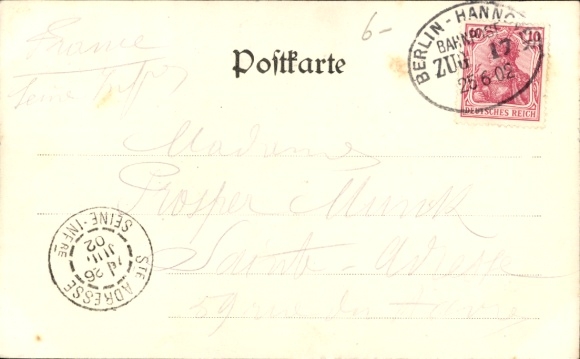 6-
France
Seine Inf
Postkarte
BERLIN - HANNOVER
BAHNPOST
ZUG 17
25 6 02
10
DEUTSCHES REICH
Madame
Prosper Munck
Sainte-Adresse
59 rue du Havre
STE ADRESSE
26
JUIL
02
SEINE-INFRE